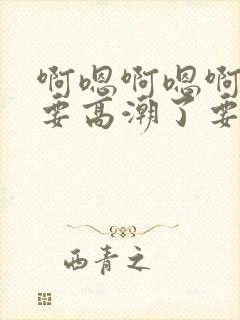 啊嗯啊嗯啊
要高潮了要
西青之